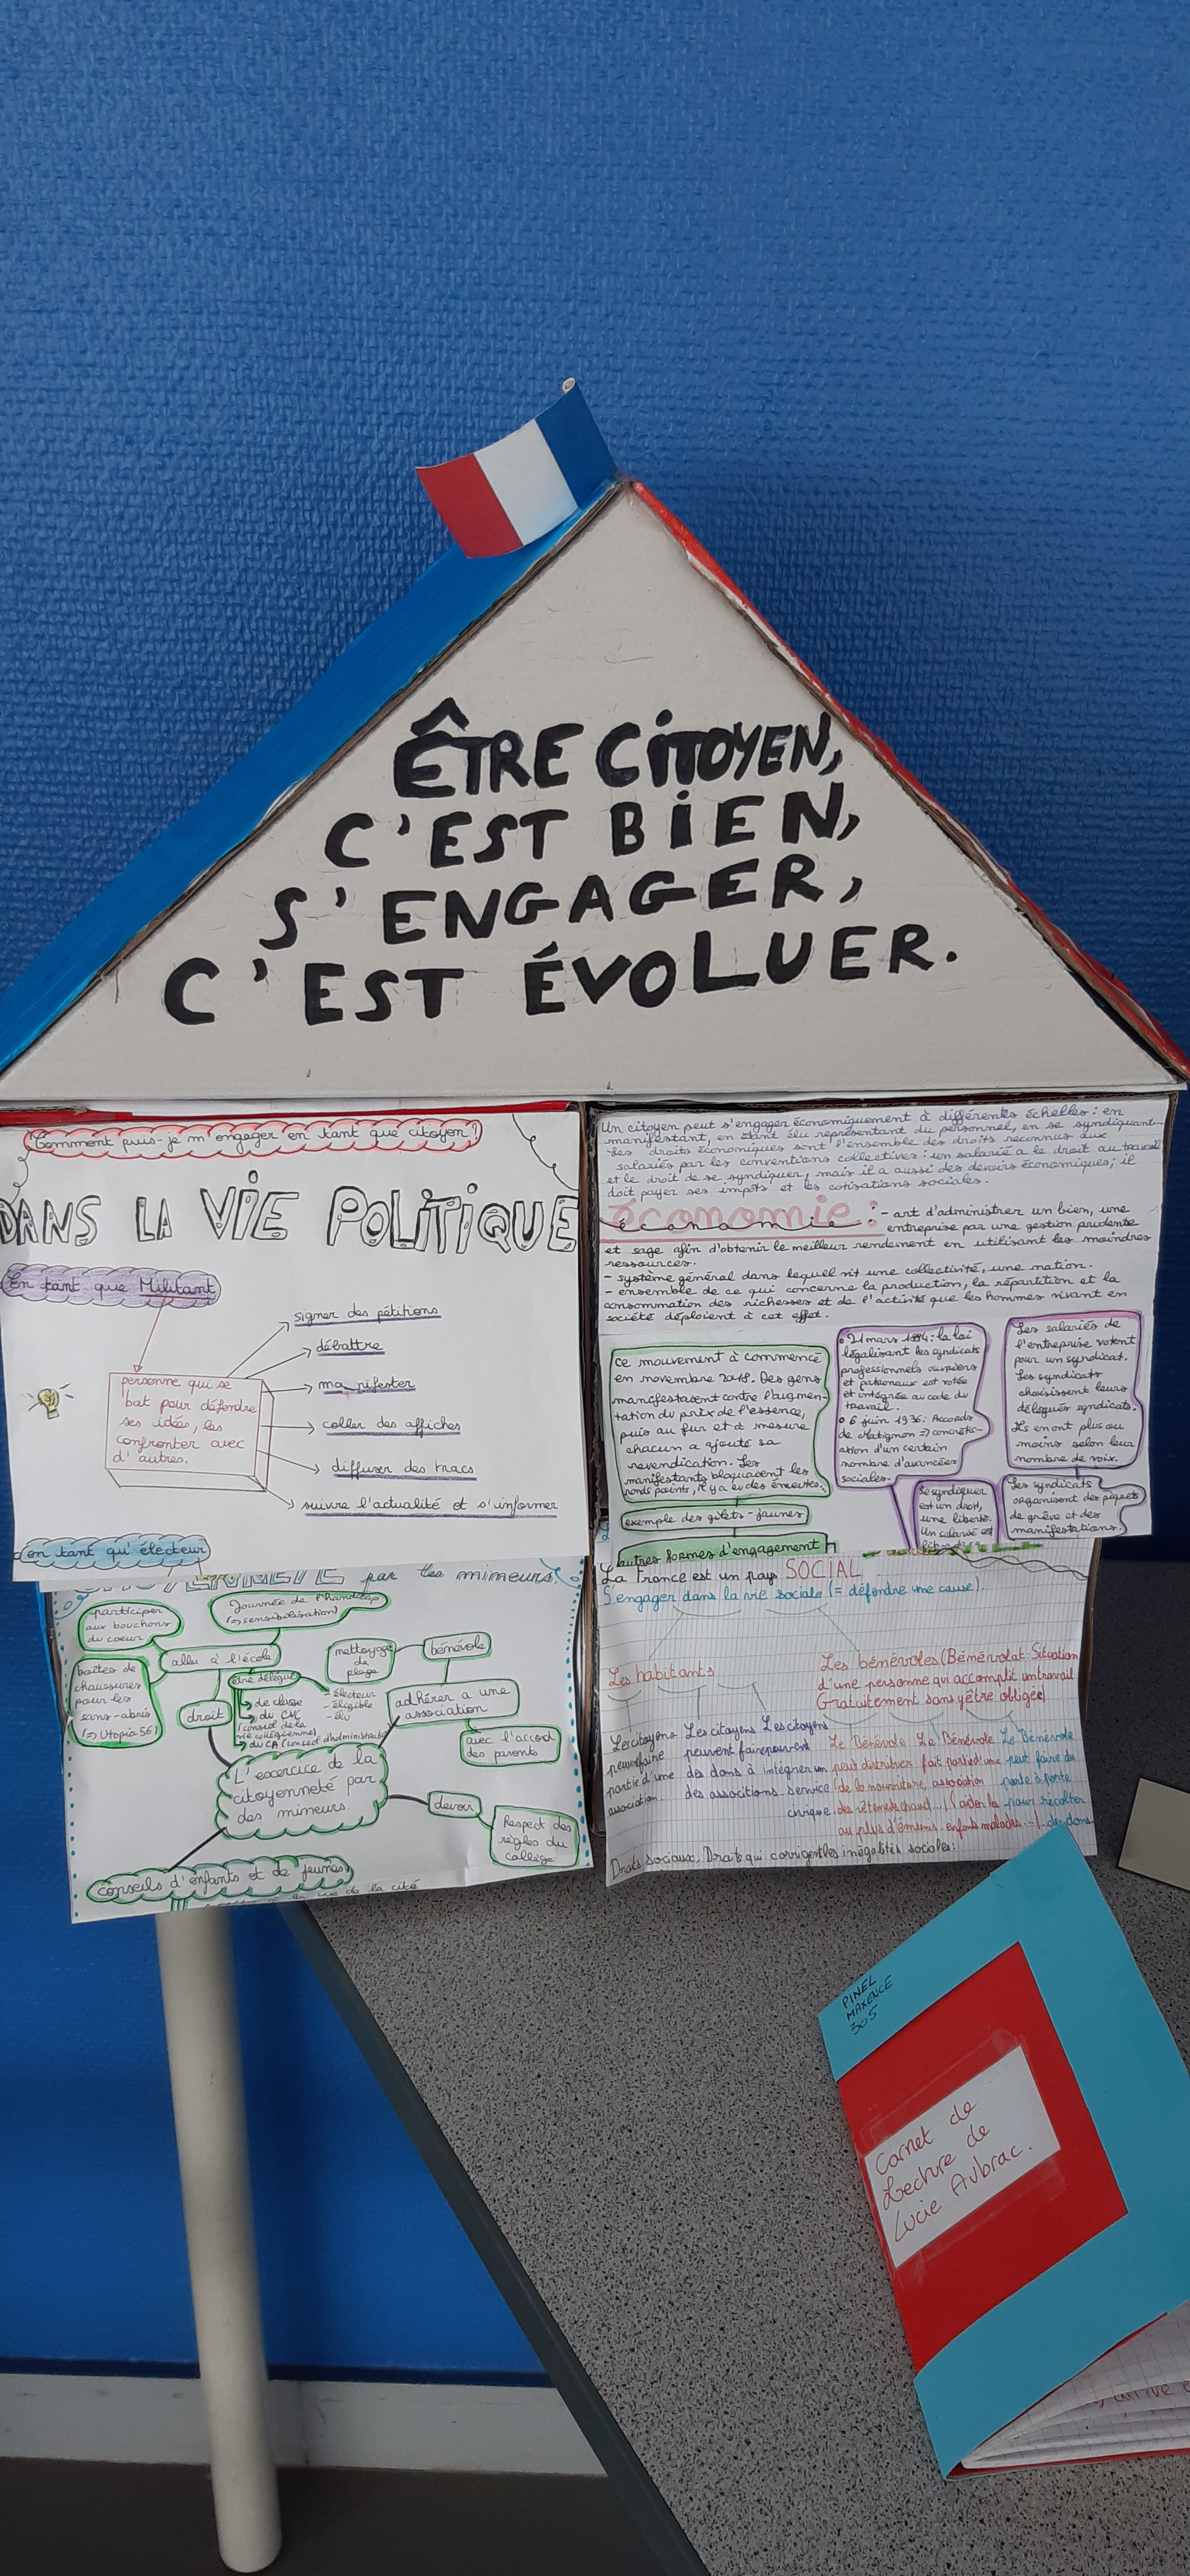 ÊTRE CITOYEN,
C'EST BIEN,
S'ENGAGER,
C'EST ÉVOLUER.
Comment puis-je m'engager en tant que citoyen?
DANS LA VIE POLITIQUE
En tant que Militant
signer des pétitions
débattre
manifester
coller des affiches
diffuser des tracs
suivre l'actualité et s'informer
personne qui se
bat pour défendre
ses idées, les
confronter avec
d'autres.
en tant qu'électeur
Un citoyen peut s'engager économiquement à différentes échelles : en
manifestant, en étant élu représentant du personnel, en se syndiquant...
droits économiques sont l'ensemble des droits reconnus aux
salariés par les conventions collectives : un salarié a le droit au travail
et le droit de se syndiquer, mais il a aussi des devoirs économiques; il
doit payer ses impôts et les cotisations sociales.
économie : - art d'administrer un bien, une
entreprise par une gestion prudente
et sage afin d'obtenir le meilleur rendement en utilisant les moindres
ressources.
- système général dans lequel vit une collectivité, une nation.
- ensemble de ce qui concerne la production, la répartition et la
consommation des richesses et de l'activité que les hommes vivant en
société déploient à cet effet.
ce mouvement à commencé
en novembre 2018. Des gens
manifestaient contre l'augmen-
tation du prix de l'essence,
puis au fur et à mesure
chacun a ajouté sa
revendication. Les
manifestants bloquaient les
ronds points, il y a eu des émeutes...
exemple des gilets-jaunes
autres formes d'engagement
21 mars 1884 : la loi
légalisant les syndicats
professionnels ouvriers
et patronaux est votée
et intégrée au code du
travail.
6 juin 1936: Accords
de Matignon => concrétis-
ation d'un certain
nombre d'avancées
sociales.
Les salariés de
l'entreprise votent
pour un syndicat.
Les syndicats
choisissent leurs
délégués syndicats.
Ils en ont plus ou
moins selon leur
nombre de voix.
Se syndiquer
est un droit,
une liberté.
Un salarié est
Les syndicats
organisent des piquets
de grève et des
manifestations.
par les mineurs.
participer
aux bouchons
du coeur
Journée de l'handicap
(=> sensibilisation)
aller à l'école
boîtes de
chaussures
pour les
sans-abris
(=> Utopia 56)
droit
être délégué
de classe
du CVC
(conseil de la
vie collégienne)
du CA (conseil d'administratio
- électeur
- éligible
- élu
nettoyage
de
plage
bénévole
adhérer a une
association
avec l'accord
des parents
L'exercice de la
citoyenneté par
des mineurs.
devoir
Respect des
règles du
collège
conseils d'enfants et de jeunes
de la cité
La France est un pays SOCIAL
S'engager dans la vie sociale (= défendre une cause).
Les habitants
Les bénévoles (Bénévolat: Situation
d'une personne qui accomplit un travail
Gratuitement sans y être obligée)
Les citoyens
peuvent faire
partie d'une
association.
Les citoyens
peuvent faire
des dons à
des associtions.
Les citoyens
peuvent
intégrer un
service
civique.
Le Bénévole
peut distribuer
de la nourriture,
des vêtements chaud...
au plus démunis.
Le Bénévole
fait parti d'une
association
enfants malades
Le Bénévole
peut faire du
porte à porte
pour récolter
des dons.
Droits sociaux. Droits qui corrigent les inégalités sociales:
PINEL
MAXENCE
305
Carnet de
Lecture de
Lucie Aubrac.